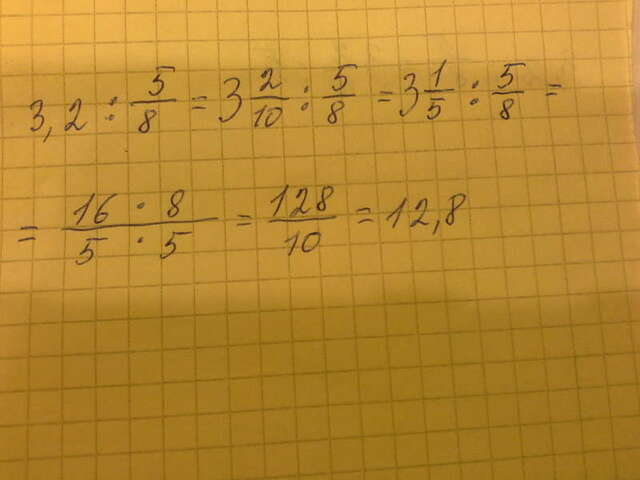 3,2 : 5/8 = 3 2/10 : 5/8 = 3 1/5 : 5/8 =
= (16 · 8)/(5 · 5) = 128/10 = 12,8